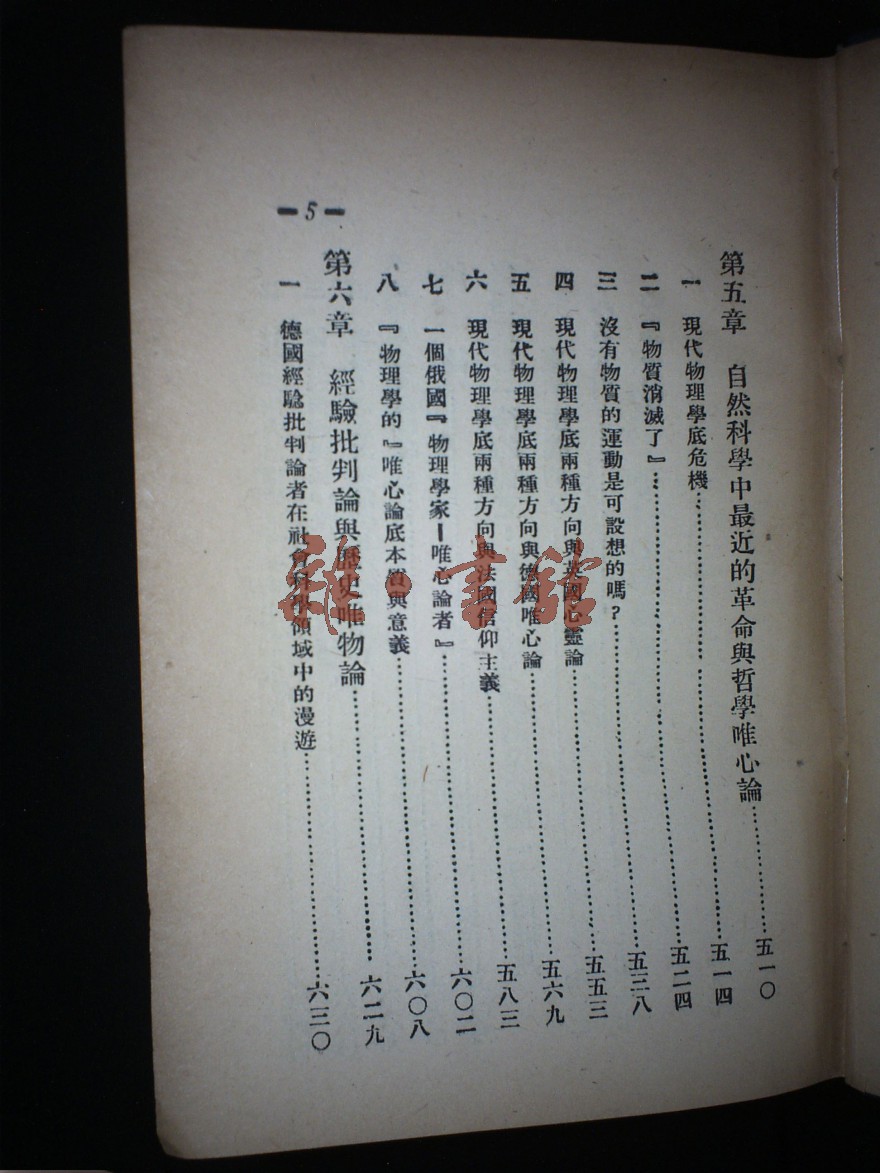 第五章 自然科學中最近的革命與哲學唯心論……五一〇
一 現代物理學底危機……五一四
二 『物質消滅了』……五二四
三 沒有物質的運動是可設想的嗎？……五三八
四 現代物理學底兩種方向與英國心靈論……五五三
五 現代物理學底兩種方向與德國唯心論……五六九
六 現代物理學底兩種方向與法國信仰主義……五八三
七 一個俄國『物理學家—唯心論者』……六〇二
八 『物理學的』唯心論底本質與意義……六〇八
第六章 經驗批判論與歷史唯物論……六二九
一 德國經驗批判論者在社會科學領域中的漫遊……六三〇
— 5 —
雜·書館